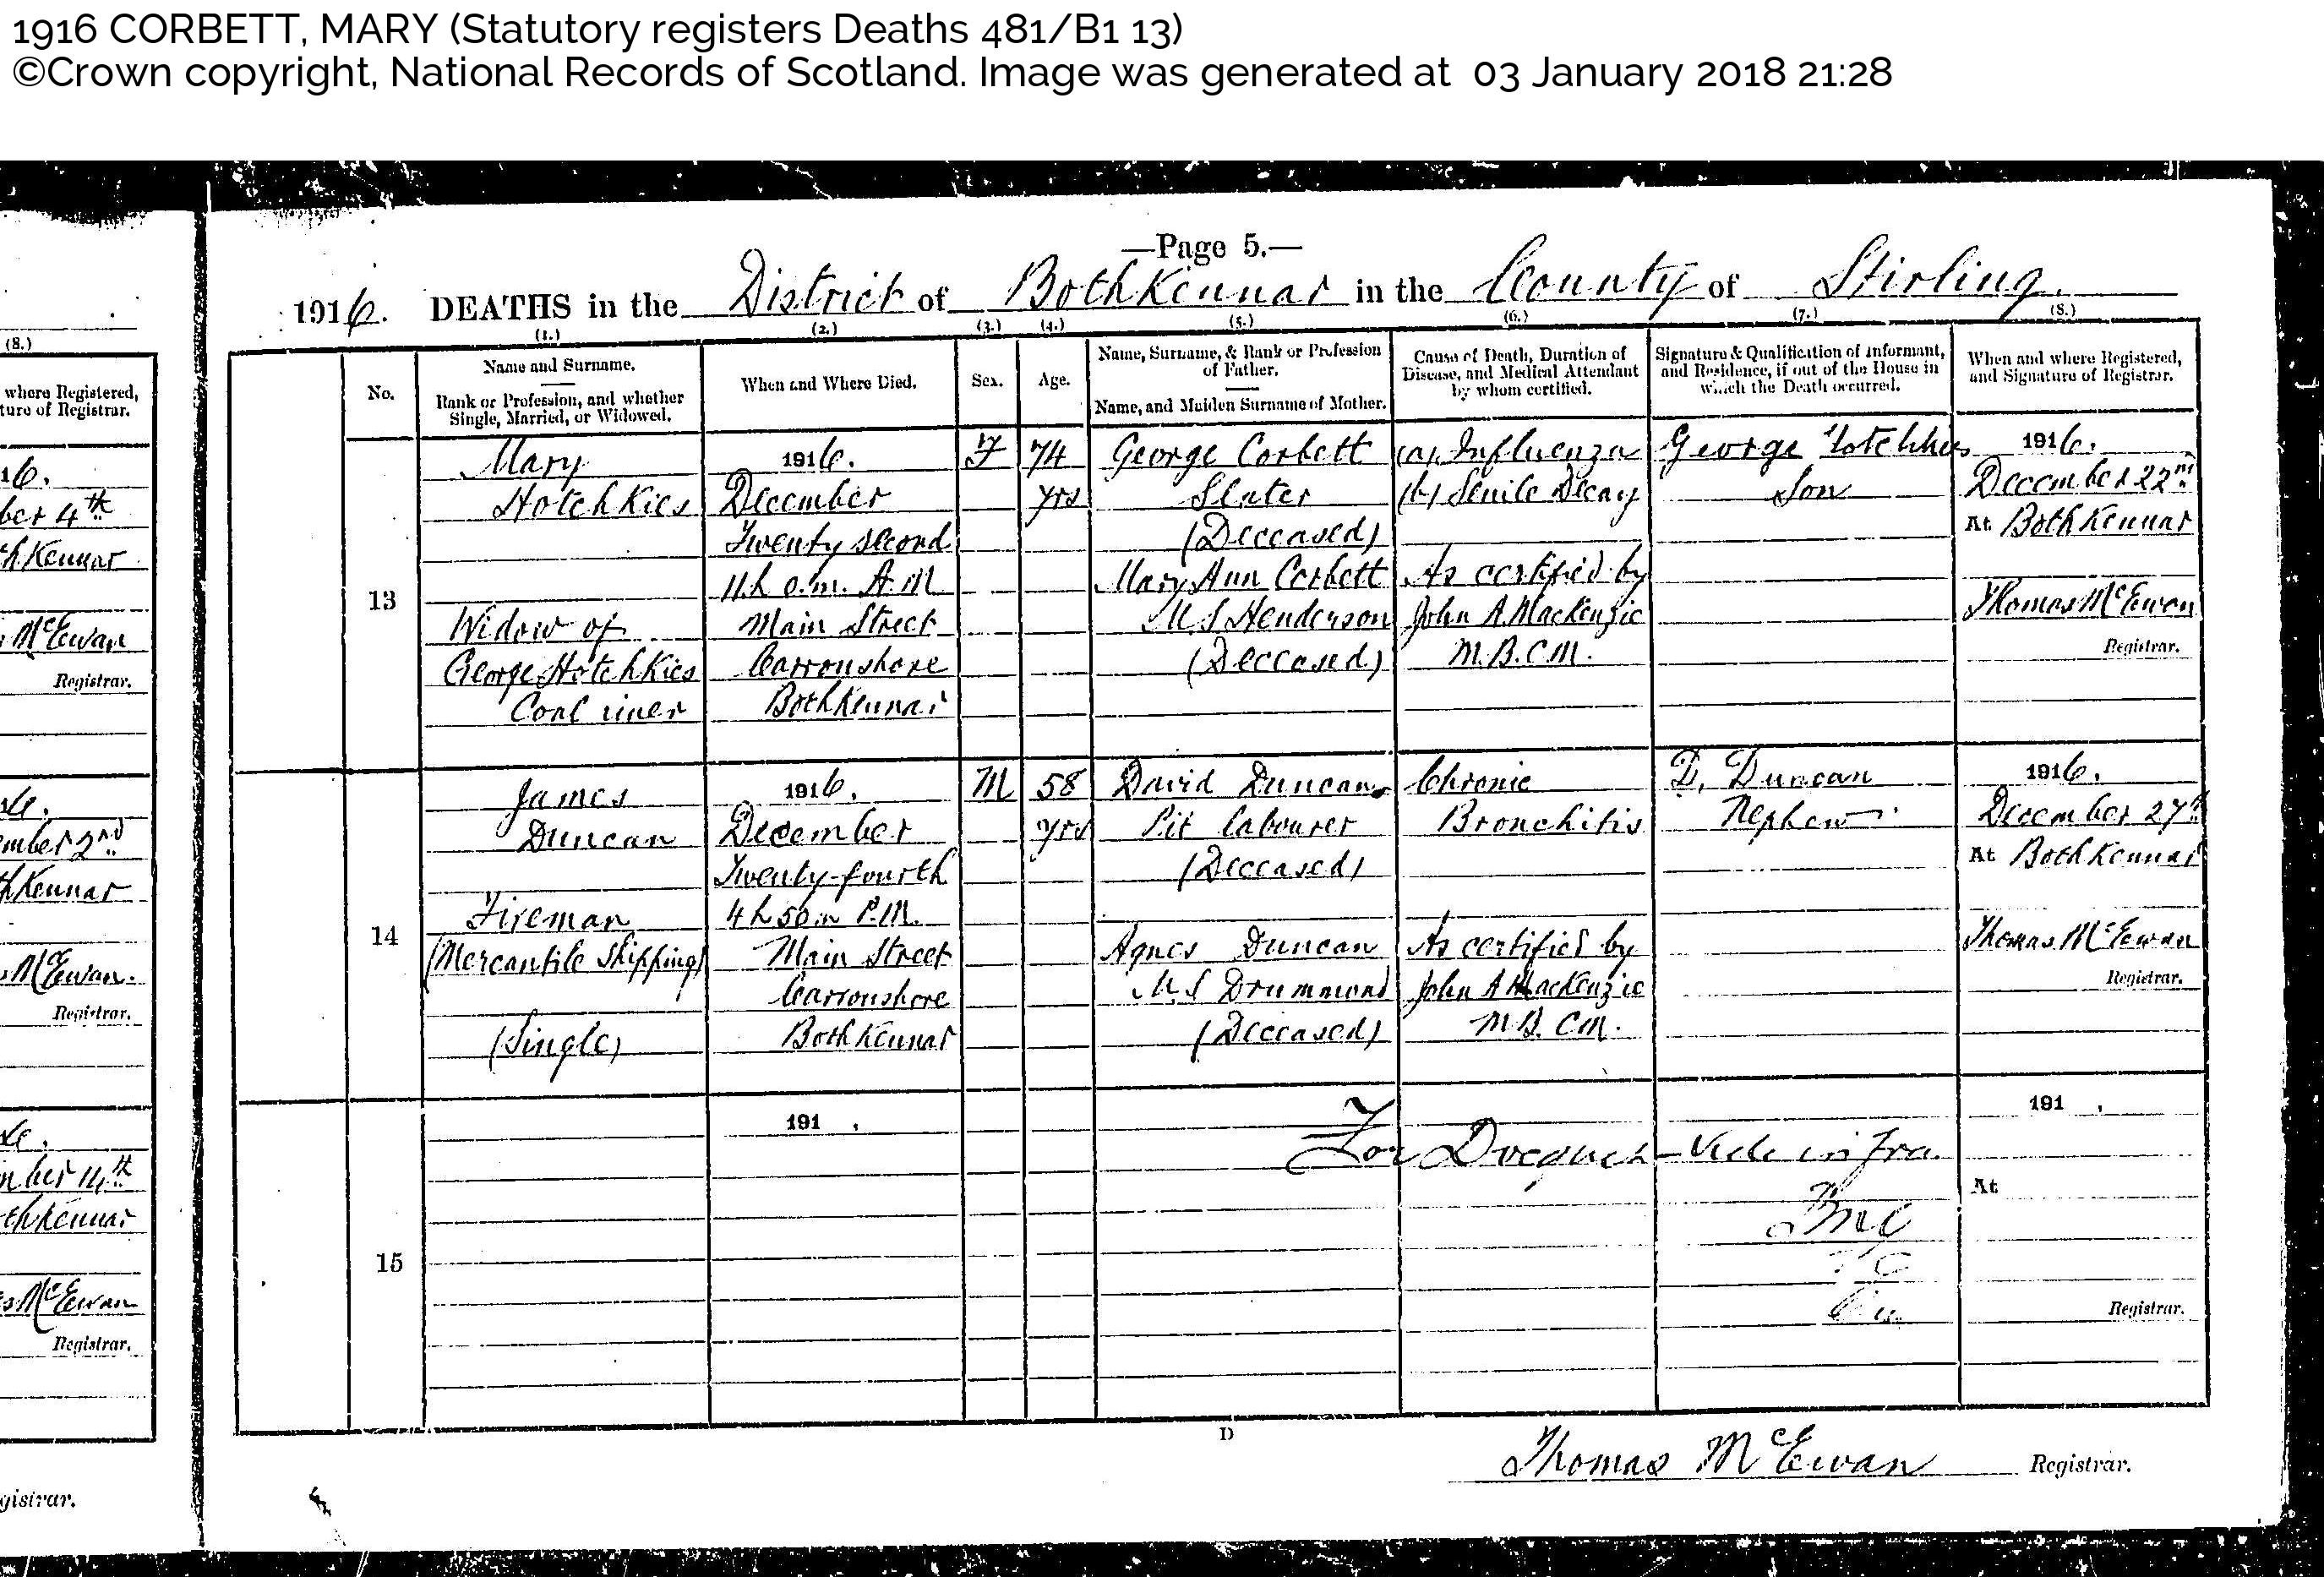 1916 CORBETT, MARY (Statutory registers Deaths 481/B1 13)
©Crown copyright, National Records of Scotland. Image was generated at 03 January 2018 21:28
—Page 5.—
1916. DEATHS in the District of Bothkennar in the County of Stirling.
(1.) (2.) (3.) (4.) (5.) (6.) (7.) (8.)
No.
Name and Surname.
Rank or Profession, and whether
Single, Married, or Widowed.
When and Where Died.
Sex.
Age.
Name, Surname, & Rank or Profession
of Father.
Name, and Maiden Surname of Mother.
Cause of Death, Duration of
Disease, and Medical Attendant
by whom certified.
Signature & Qualification of Informant,
and Residence, if out of the House in
which the Death occurred.
When and where Registered,
and Signature of Registrar.
13
Mary
Hotchkies
Widow of
George Hotchkies
Coal
1916.
December
Twenty second
11.h 0.m. A.M
Main Street
Carronshore
Bothkennar
F
74
yrs
George Corbett
Slater
(Deceased)
Mary Ann Corbett
M.S Henderson
(Deceased)
(a) Influenza
(b) Senile Decay
As certified by
John A. MacKenzie
M.B.C.M.
George Hotchkies
Son
1916.
December 22nd
At Bothkennar
Thomas McEwan
Registrar.
14
James
Duncan
Fireman
(Mercantile Shipping)
(Single)
1916.
December
Twenty-fourth
4 h 50 m P.M.
Main Street
Carronshore
Bothkennar
M
58
yrs
David Duncan
Pit labourer
(Deceased)
Agnes Duncan
M.S Drummond
(Deceased)
Chronic
Bronchitis
As certified by
John A MacKenzie
M.B. C.M.
D. Duncan
Nephew
1916.
December 27th
At Bothkennar
Thomas McEwan
Registrar.
15
191 .
For Docquet – Vide infra.
191 .
At
Registrar.
D
Thomas McEwan Registrar.
(8.)
where Registered,
ture of Registrar.
16.
ber 4th
hKennar
McEwan
Registrar.
mber 2nd
hKennar
McEwan.
Registrar.
mber 14th
thKennar
McEwan
Registrar.
gistrar.